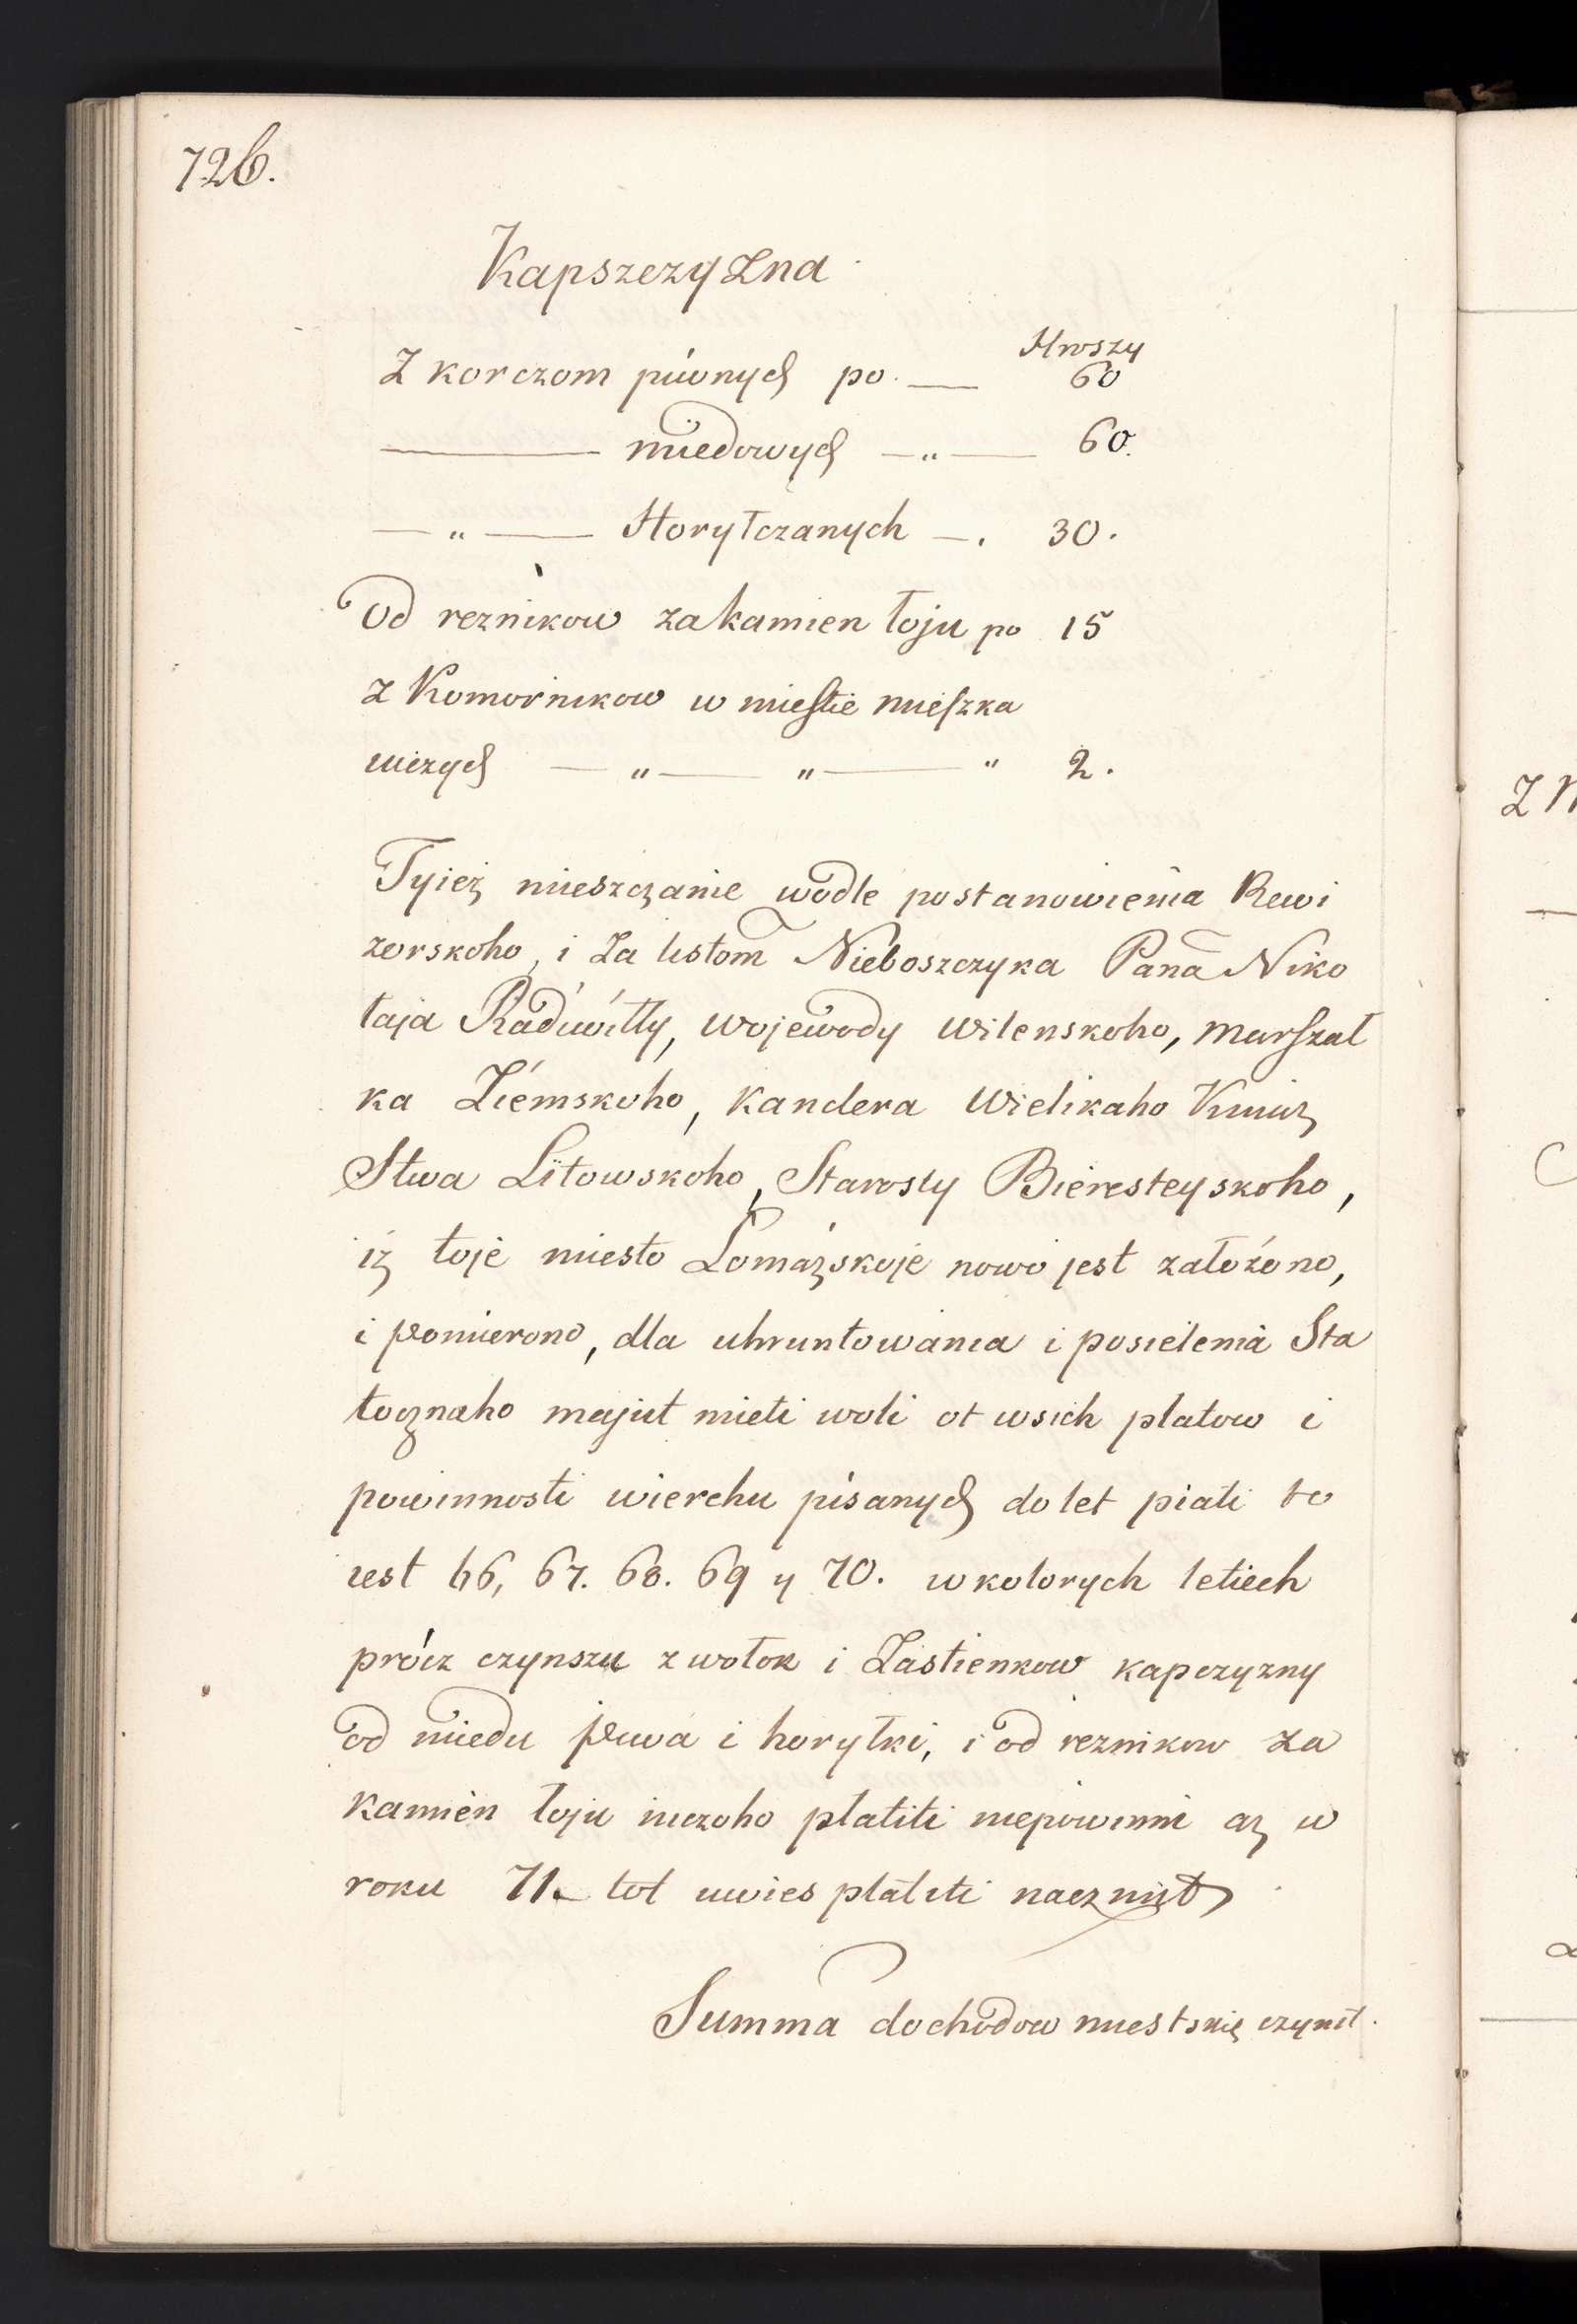 726.
Kapszczyzna
Hroszy
Z korczom piwnych po. — 60
— miedowych — „ — 60.
— „ — Horyłczanych —. 30.
Od reznikow za kamien łoju po 15
z Komornikow w miestie mieszka
iuczych — „ — „ — „ 2.
Tyież mieszczanie wodle postanowienia Rewi
zorskoho, i za listom Nieboszczyka Pana Niko
łaja Radiwiłły, Wojewody Wilenskoho, Marszał
ka Ziemskoho, Kanclera Wielikaho Kniaz
Stwa Litowskoho, Starosty Bieresteyskoho,
iż toje miesto Łomazskoje nowo jest założono,
i pomierono, dla uhruntowania i posielenia Sta
tocznaho majut mieti woli ot wsich płatow i
powinnosti wierchu pisanych do let piati to
iest 66, 67. 68. 69 y 70. w kotorych letiech
prócz czynszu z wołok i Zastienkow kapczyzny
od miedu piwa i horyłki, i od reznikow za
kamien łoju niczoho płatiti niepowinni aż w
roku 71. tot uwies płatiti nacznut
Summa dochodow miestskię czynit.
Z